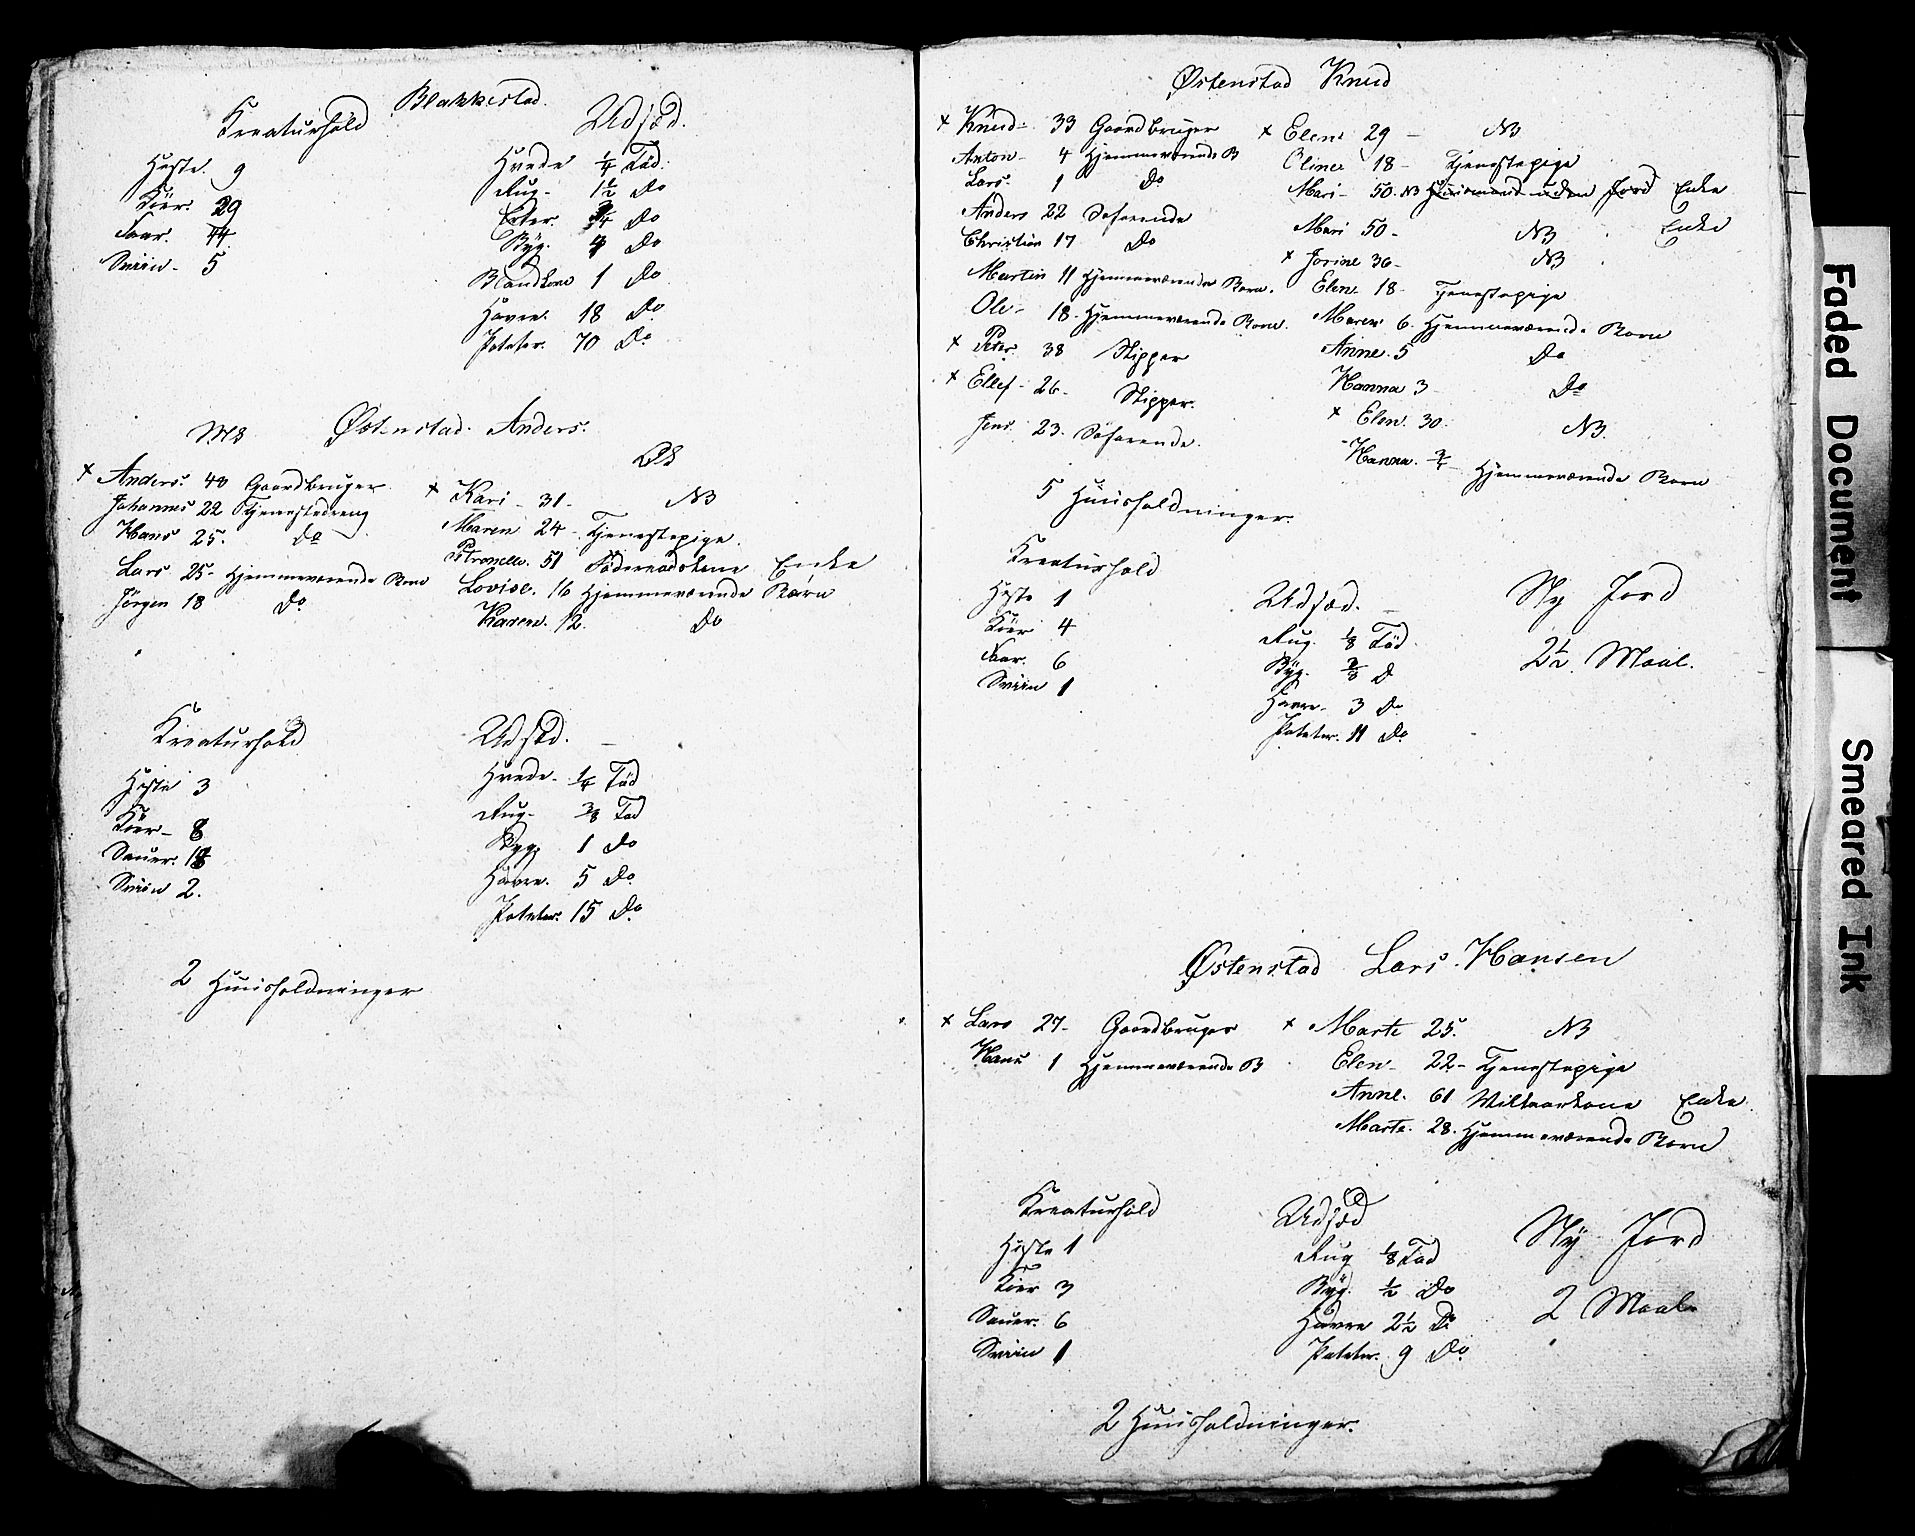 Blakkestad.
Kreaturhold
Udsæd.
Heste. 9
Kiør. 29
Faar. 44
Sviin - 5
Hvede 1/4 Töd.
Rug - 1 1/2 Do
Erter. 3/4 Do
Byg. 4 Do
Blandkorn 1 Do
Havre. 18 Do
Poteter. 70 Do
Østenstad. Anders.
+ Anders. 48 Gaardbruger
Johannes 22 Tjenestedreng
Hans 25. Do
Lars 25 - Hjemmeværende Børn
Jörgen 18 Do
+ Kari - 31 - NB
Maren 24 - Tjenestepige.
Petronelle. 51 Föderaadskone Enke
Lovise. 16 Hjemmeværende Børn
Karen. 12. Do
Kreaturhold
Heste 3
Kiør - 8
Sauer. 18
Sviin 2.
Udsæd.
Hvede - 1/4 Töd
Rug - 3/8 Töd
Byg 1 Do
Havre. 5 Do
Poteter. 15 Do
2 Huusholdninger
Østenstad Knud
+ Knud - 33 Gaardbruger
Anton - 4 Hjemmeværende B
Lars. 1 Do
Anders 22 Söfarende
Christian 17 Do
Martin 11 Hjemmeværende Børn.
Ole - 18 - Hjemmeværende Børn.
+ Peter. 38 Skipper
+ Ellef - 26 - Skipper.
Jens 23. Söfarende.
+ Elene 29 - NB
Oline 18 - Tjenestepige
Mari - 50. NB Huusmand uden Jord Enke
Mari 50 - NB Enke
+ Jorine 36 - NB
Elen 18 - Tjenestepige
Maren 6. Hjemmeværende Børn
Anne. 5 Do
Hanna 3 Do
+ Elen. 30. NB.
Hanna. 3/4 - Hjemmeværende Børn
5 Huusholdninger.
Kreaturhold
Heste 1
Kiør 4
Faar. 6
Sviin 1
Udsæd.
Rug. 1/8 Töd.
Byg. 3/8 D
Havre - 3 Do
Poteter. 11 Do
Ny Jord
2 1/2 Maal.
Østenstad Lars Hansen
+ Lars 27 - Gaardbruger
Hans 1 Hjemmeværende B
+ Marte 25. NB
Elen - 22 - Tjenestepige
Anne. 61 Wilkaarkone Enke
Marte. 28. Hjemmeværende Børn
Kreaturhold
Heste 1
Kiør 3
Sauer. 6
Sviin 1
Udsæd
Rug 1/8 Töd
Byg. 1/2 Do
Havre 2 1/2 Do
Poteter. 9 Do
Ny Jord
2 Maal
2 Huusholdninger.
Faded Document
Smeared Ink